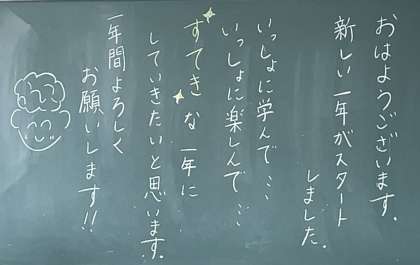 おはようございます。
新しい一年がスタート
しました。
いっしょに学んで…
いっしょに楽しんで…
すてきな一年に
していきたいと思います。
一年間よろしく
お願いします!!